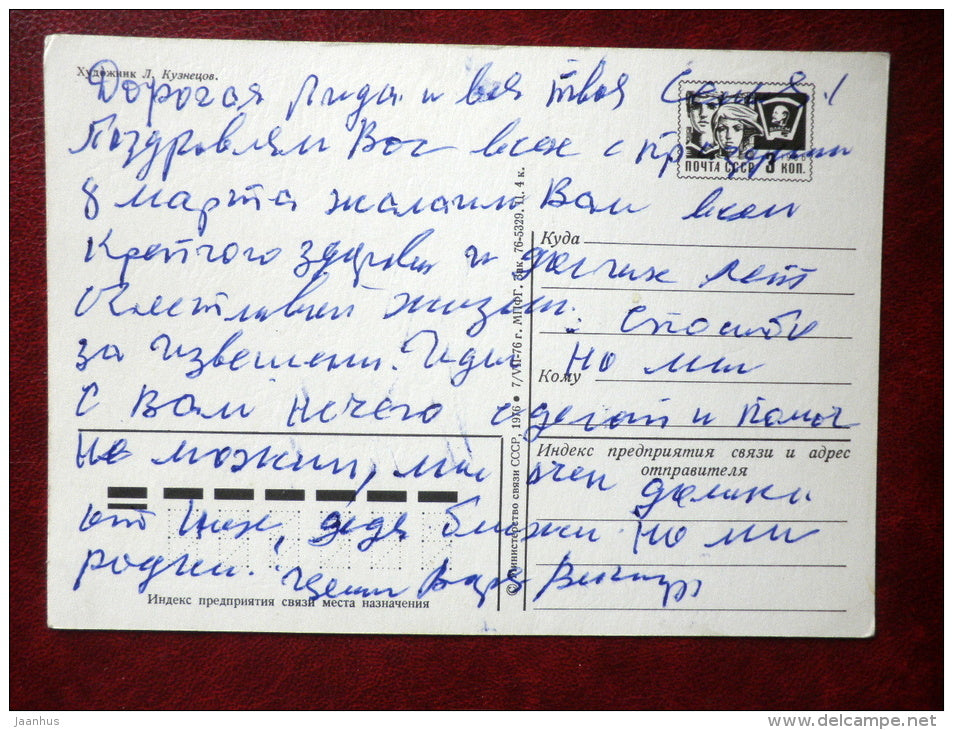 Художник Л. Кузнецов.
Дорогая Лида и вся твоя Семья!
Поздравлям Вас всех с праздником
8 марта жалаим Вам всем
Крепкого здоровия и долгих лет
счестливый жизни. спосибо
за извешени. но ми
С Вам нечего сделат и помоч
не можим, ми очен далики
от Них, дедя ближи но ми
родни. Виктир
ПОЧТА СССР 3 КОП.
Куда
Кому
Индекс предприятия связи и адрес
отправителя
Индекс предприятия связи места назначения
© Министерство связи СССР, 1976 • 7/VII-76 г. МПФГ. Зак. 76-5329. Ц. 4 к.
Jaanhus
www.delcampe.net